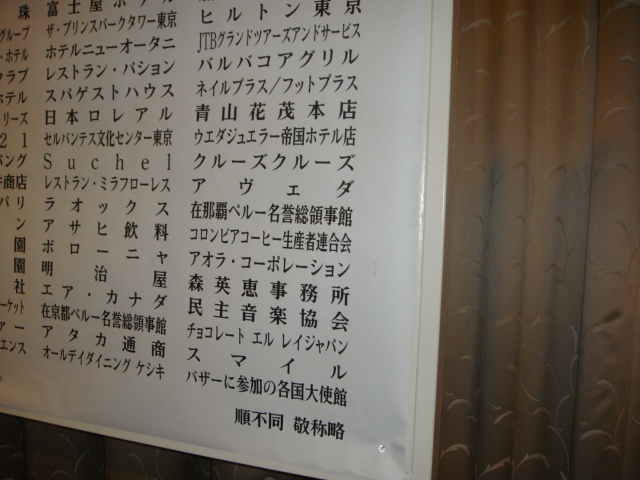 珠
グループ
・ホテル
クラブ
ホテル
リーズ
21
商店
バリ
ン
園
園
社
ーケット
アー
エンス
富士屋ホテル
ザ・プリンスパークタワー東京
ホテルニューオータニ
レストラン・パション
スパゲストハウス
日本ロレアル
セルバンテス文化センター東京
Suchel
レストラン・ミラフローレス
ラオックス
アサヒ飲料
ボローニャ
明治屋
エア・カナダ
在京都ペルー名誉総領事館
アタカ通商
オールデイダイニング ケシキ
ヒルトン東京
JTBグランドツアーズアンドサービス
バルバコアグリル
ネイルプラス/フットプラス
青山花茂本店
ウエダジュエラー帝国ホテル店
クルーズクルーズ
アヴェダ
在那覇ペルー名誉総領事館
コロンビアコーヒー生産者連合会
アオラ・コーポレーション
森英恵事務所
民主音楽協会
チョコレート エル レイジャパン
スマイル
バザーに参加の各国大使館
順不同 敬称略